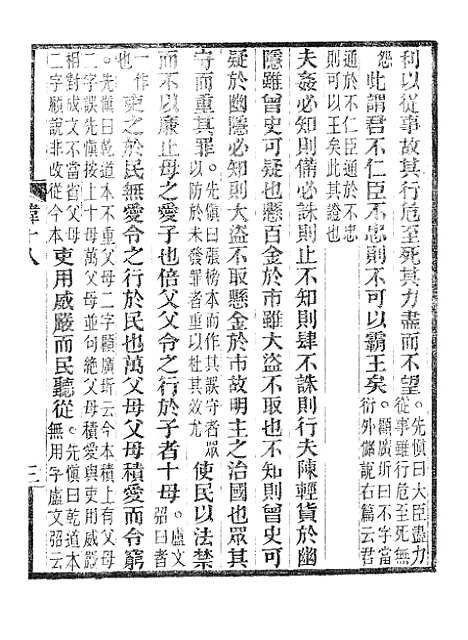 利以從事故其行危至死其力盡而不望。先慎曰大臣盡力從事雖行危至死無
怨此謂君不仁臣不忠則不可以霸王矣。顧廣圻曰不字當衍外儲說右篇云君
通於不仁臣通於不忠則可以王矣此其證也
夫姦必知則備必誅則止不知則肆不誅則行夫陳輕貨於幽
隱雖曾史可疑也懸百金於市雖大盜不取也不知則曾史可
疑於幽隱必知則大盜不取懸金於市故明主之治國也眾其
守而重其罪。先慎曰張榜本而作其誤守者眾以防於未發罪者重以杜其效尤使民以法禁
而不以廉止母之愛子也倍父父令之行於子者十母。盧文弨曰者
一作也吏之於民無愛令之行於民也萬父母父母積愛而令窮
。先慎曰乾道本不重父母二字顧廣圻云今本積上有父母二字誤先慎按上十母萬父母並句絶父母積愛與吏用威嚴
相對成文不當省父母二字顧說非改從今本吏用威嚴而民聽從。先慎曰乾道本無用字盧文弨云
韓十八
三